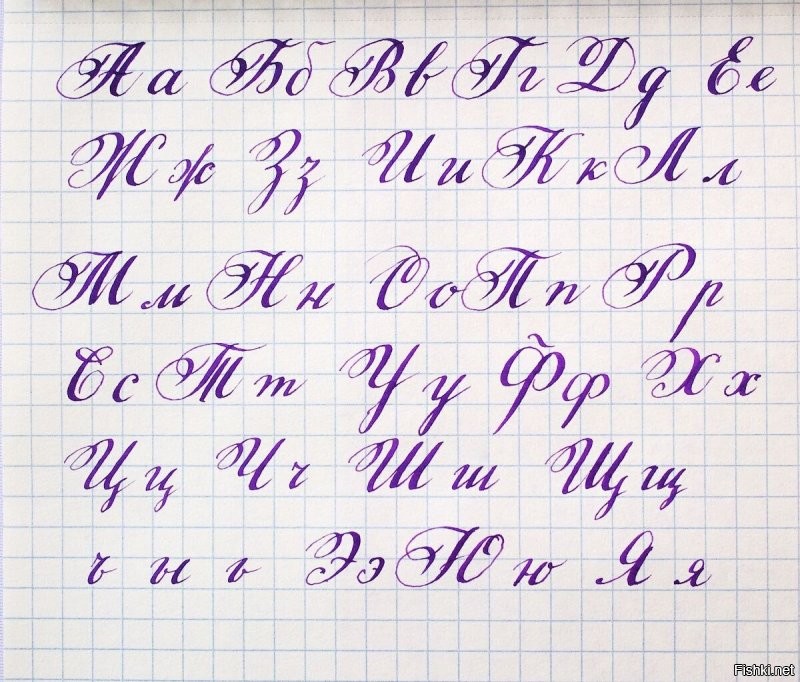 Аа Бб Вв Гг Дд Ее
Жж Зз Ии Кк Лл
Мм Нн Оо Пп Рр
Сс Тт Уу Фф Хх
Цц Чч Шш Щщ
ъ ы ь Ээ Юю Яя
Fishki.net